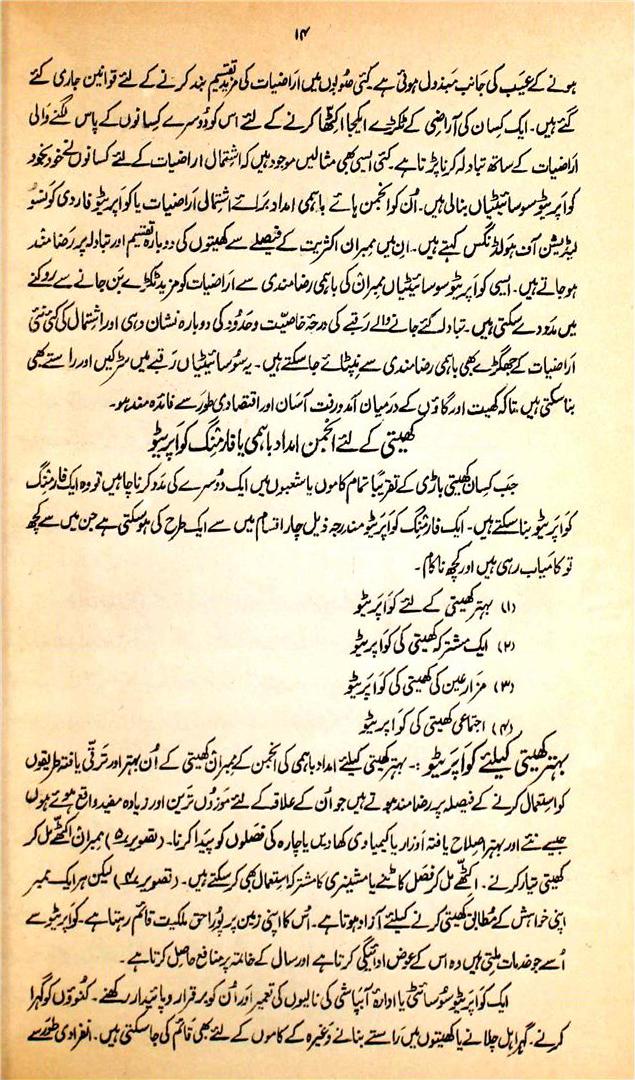 ۱۴
ہونے کے عیب کی جانب مبذول ہوئی ہے۔ کئی صوبوں میں اراضیات کی مزید تقسیم بند کرنے کے لئے قوانین جاری کئے
گئے ہیں۔ ایک کسان کی آراضی کے ٹکڑے ایکجا اکٹھا کرنے کے لئے اس کو دوسرے کسانوں کے پاس لگنے والی
اراضیات کے ساتھ تبادلہ کرنا پڑتا ہے۔ کئی ایسی بھی مثالیں موجود ہیں کہ اشتمال اراضیات کے لئے کسانوں نے خود بخود
کواپریٹو سوسائیٹیاں بنالی ہیں۔ اُن کو انجمن ہائے باہمی امداد برائے اشتمالی اراضیات یا کواپریٹو فار دی کونسو
لیڈیشن آف ہولڈنگس کہتے ہیں۔ ان میں ممبران اکثریت کے فیصلے سے کھیتوں کی دوبارہ تقسیم اور تبادلہ پر رضا مند
ہو جاتے ہیں۔ ایسی کواپریٹو سوسائیٹیاں ممبران کی باہمی رضامندی سے اراضیات کو مزید ٹکڑے بن جانے سے روکنے
میں مدد دے سکتی ہیں۔ تبادلہ کئے جانے والے رقبے کی درجۂ خاصیت وحدود کی دوبارہ نشان دہی اور اشتمال کی گئی نئی
اراضیات کے جھگڑے بھی باہمی رضامندی سے نپٹائے جا سکتے ہیں۔ یہ سوسائیٹیاں رقبے میں سڑکیں اور راستے بھی
بنا سکتی ہیں تاکہ کھیت اور گاؤں کے درمیان آمدورفت آسان اور اقتصادی طور سے فائدہ مند ہو۔
کھیتی کے لئے انجمن امداد باہمی یا فارمنگ کواپریٹو
جب کسان کھیتی باڑی کے تقریباً تمام کاموں یا شعبوں میں ایک دوسرے کی مدد کرنا چاہیں تو وہ ایک فارمنگ
کواپریٹو بنا سکتے ہیں۔ ایک فارمنگ کواپریٹو مندرجہ ذیل چار اقسام میں سے ایک طرح کی ہو سکتی ہے جن میں سے کچھ
تو کامیاب رہی ہیں اور کچھ ناکام۔
(۱) بہتر کھیتی کے لئے کواپریٹو
(۲) ایک مشترکہ کھیتی کی کواپریٹو
(۳) مزارعین کی کھیتی کی کواپریٹو
(۴) اجتماعی کھیتی کی کواپریٹو
بہتر کھیتی کیلئے کواپریٹو :- بہتر کھیتی کیلئے امداد باہمی کی انجمن کے ممبران کھیتی کے اُن بہتر اور ترقی یافتہ طریقوں
کو استعمال کرنے کے فیصلہ پر رضا مند ہوتے ہیں جو اُن کے علاقہ کے لئے موزوں ترین اور زیادہ مفید واقع ہوتے ہوں
جیسے نئے اور بہتر اصلاح یافتہ اوزار یا کیمیاوی کھادیں یا چارہ کی فصلوں کو پیدا کرنا۔ (تصویر ۵) ممبران اکٹھے مل کر
کھیتی تیار کرنے۔ اکٹھے مل کر فصل کاٹنے یا مشینری کا مشترکہ استعمال بھی کر سکتے ہیں۔ (تصویر ۶) لیکن ہر ایک ممبر
اپنی خواہش کے مطابق کھیتی کرنے کیلئے آزاد ہوتا ہے۔ اُس کا اپنی زمین پر پورا حق ملکیت قائم رہتا ہے۔ کواپریٹو سے
اُسے جو خدمات ملتی ہیں وہ اس کے عوض ادائیگی کرتا ہے اور سال کے خاتمہ پر منافع حاصل کرتا ہے۔
ایک کواپریٹو سوسائٹی یا ادارۂ آبپاشی کی نالیوں کی تعمیر اور اُن کو برقرار و پائیدار رکھنے۔ کنوؤں کو گہرا
کرنے۔ گہرا ہل چلانے یا کھیتوں میں راستے بنانے وغیرہ کے کاموں کے لئے بھی قائم کی جا سکتی ہیں۔ انفرادی طور سے